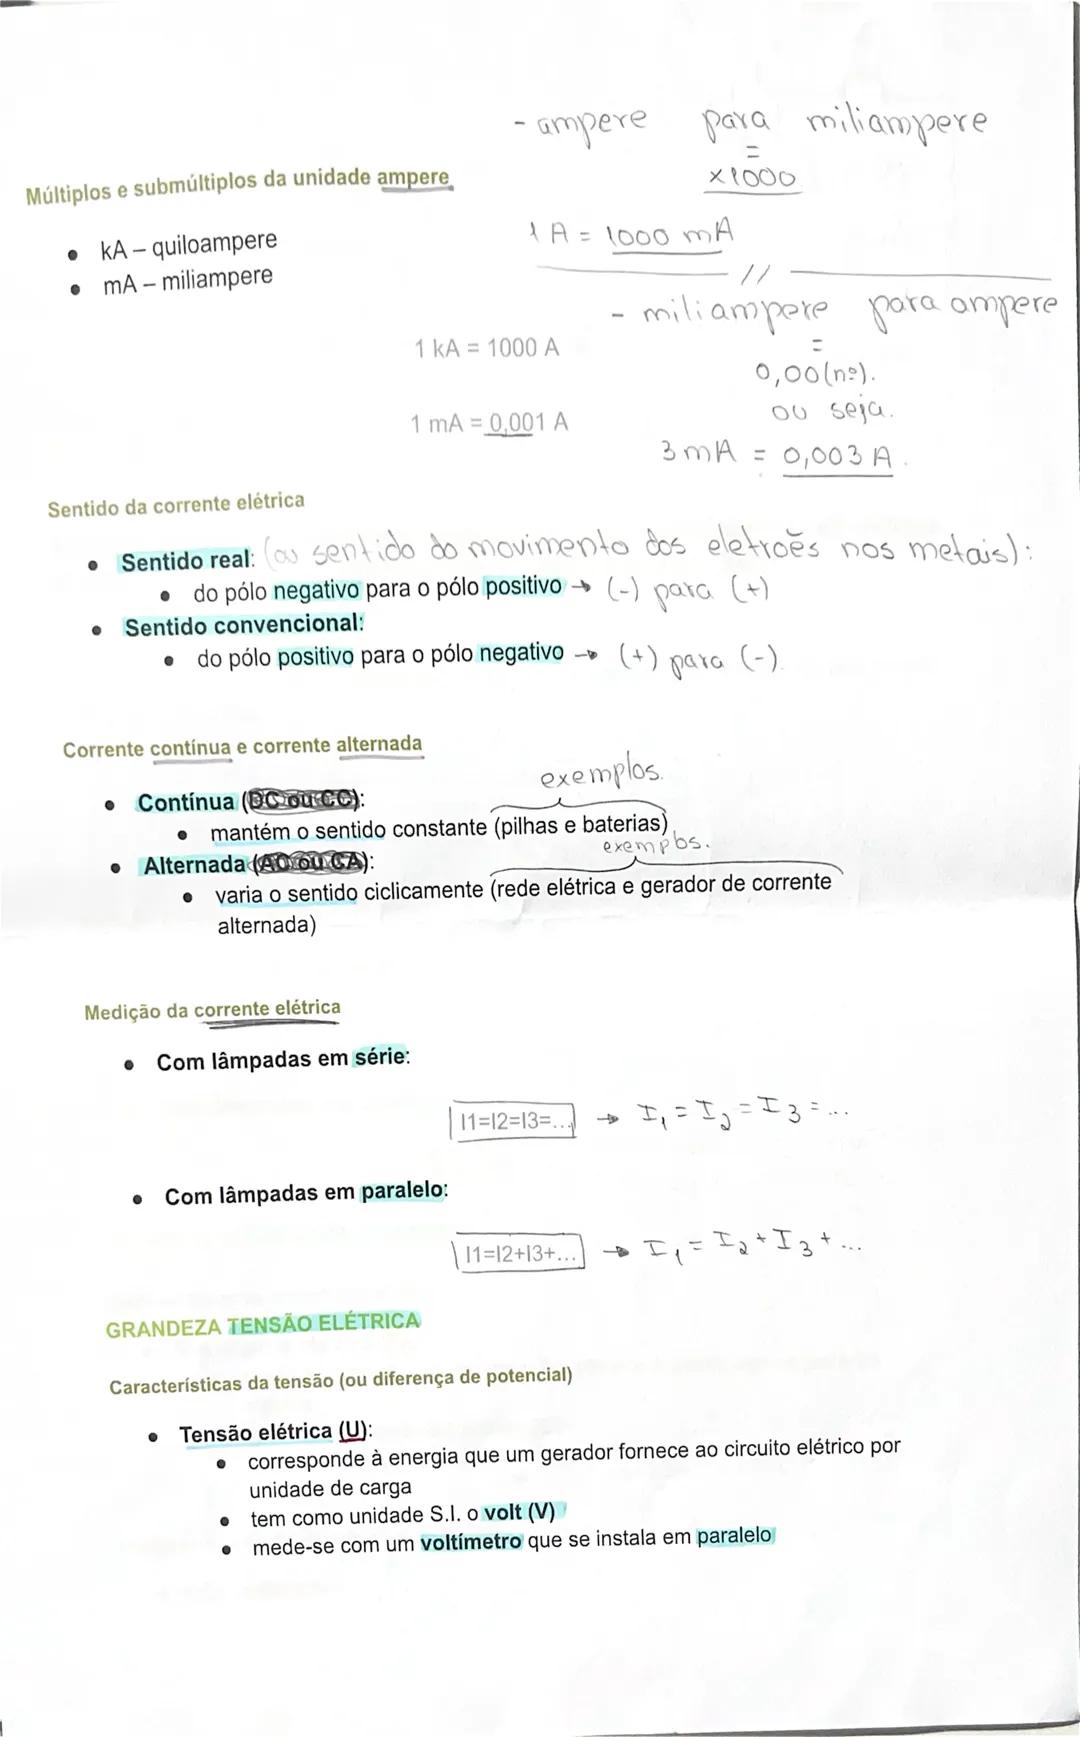 - ampere para miliampere
=
x1000
Múltiplos e submúltiplos da unidade ampere
1 A = 1000 mA
• kA – quiloampere
• mA – miliampere
//
- miliampere para ampere
=
1 kA = 1000 A
0,00(nº).
ou seja.
1 mA = 0,001 A
3 mA = 0,003 A.
Sentido da corrente elétrica
• Sentido real: (ou sentido do movimento dos eletroẽs nos metais):
• do pólo negativo para o pólo positivo → (-) para (+)
• Sentido convencional:
• do pólo positivo para o pólo negativo → (+) para (-).
Corrente contínua e corrente alternada
exemplos.
• Contínua (DC ou CC):
• mantém o sentido constante (pilhas e baterias)
exemplos.
• Alternada (AC ou CA):
• varia o sentido ciclicamente (rede elétrica e gerador de corrente
alternada)
Medição da corrente elétrica
• Com lâmpadas em série:
I1=I2=I3=... → I₁ = I₂ = I₃ = ...
• Com lâmpadas em paralelo:
I1=I2+I3+... → I₁ = I₂ + I₃ + ...
GRANDEZA TENSÃO ELÉTRICA
Características da tensão (ou diferença de potencial)
• Tensão elétrica (U):
• corresponde à energia que um gerador fornece ao circuito elétrico por
unidade de carga
• tem como unidade S.I. o volt (V)
• mede-se com um voltímetro que se instala em paralelo